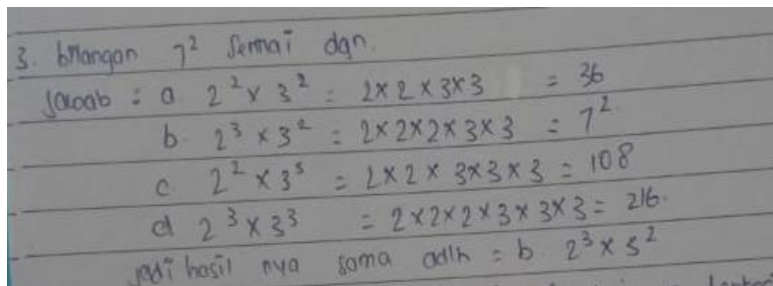 3. bilangan 7² senilai dgn.
Jawab : a. 2² x 3² = 2x2x3x3 = 36
b. 2³ x 3² = 2x2x2x3x3 = 7².
c 2² x 3³ = 2x2x 3x3x3 = 108
d 2³ x 3³ = 2x2x2x3x3x3 = 216.
jadi hasil nya sama adlh = b. 2³ x 3²